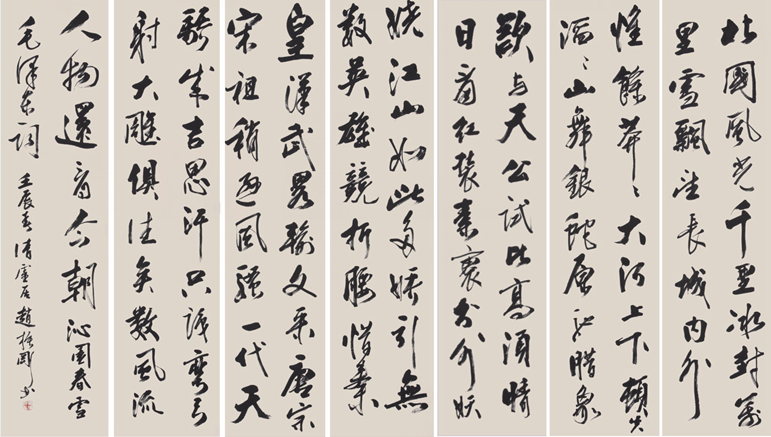 北國風光千里冰封萬
里雪飄望長城內外
惟餘莽々大河上下頓失
滔々山舞銀蛇原馳腊象
欲与天公試比高須晴
日看紅裝素裹分外妖
嬈江山如此多嬌引無
數英雄競折腰惜秦
皇漢武畧輸文采唐宗
宋祖稍遜風騷一代天
驕成吉思汗只識彎弓
射大雕俱往矣數風流
人物還看今朝沁園春雪
毛澤东詞 壬辰春清虛居趙振书